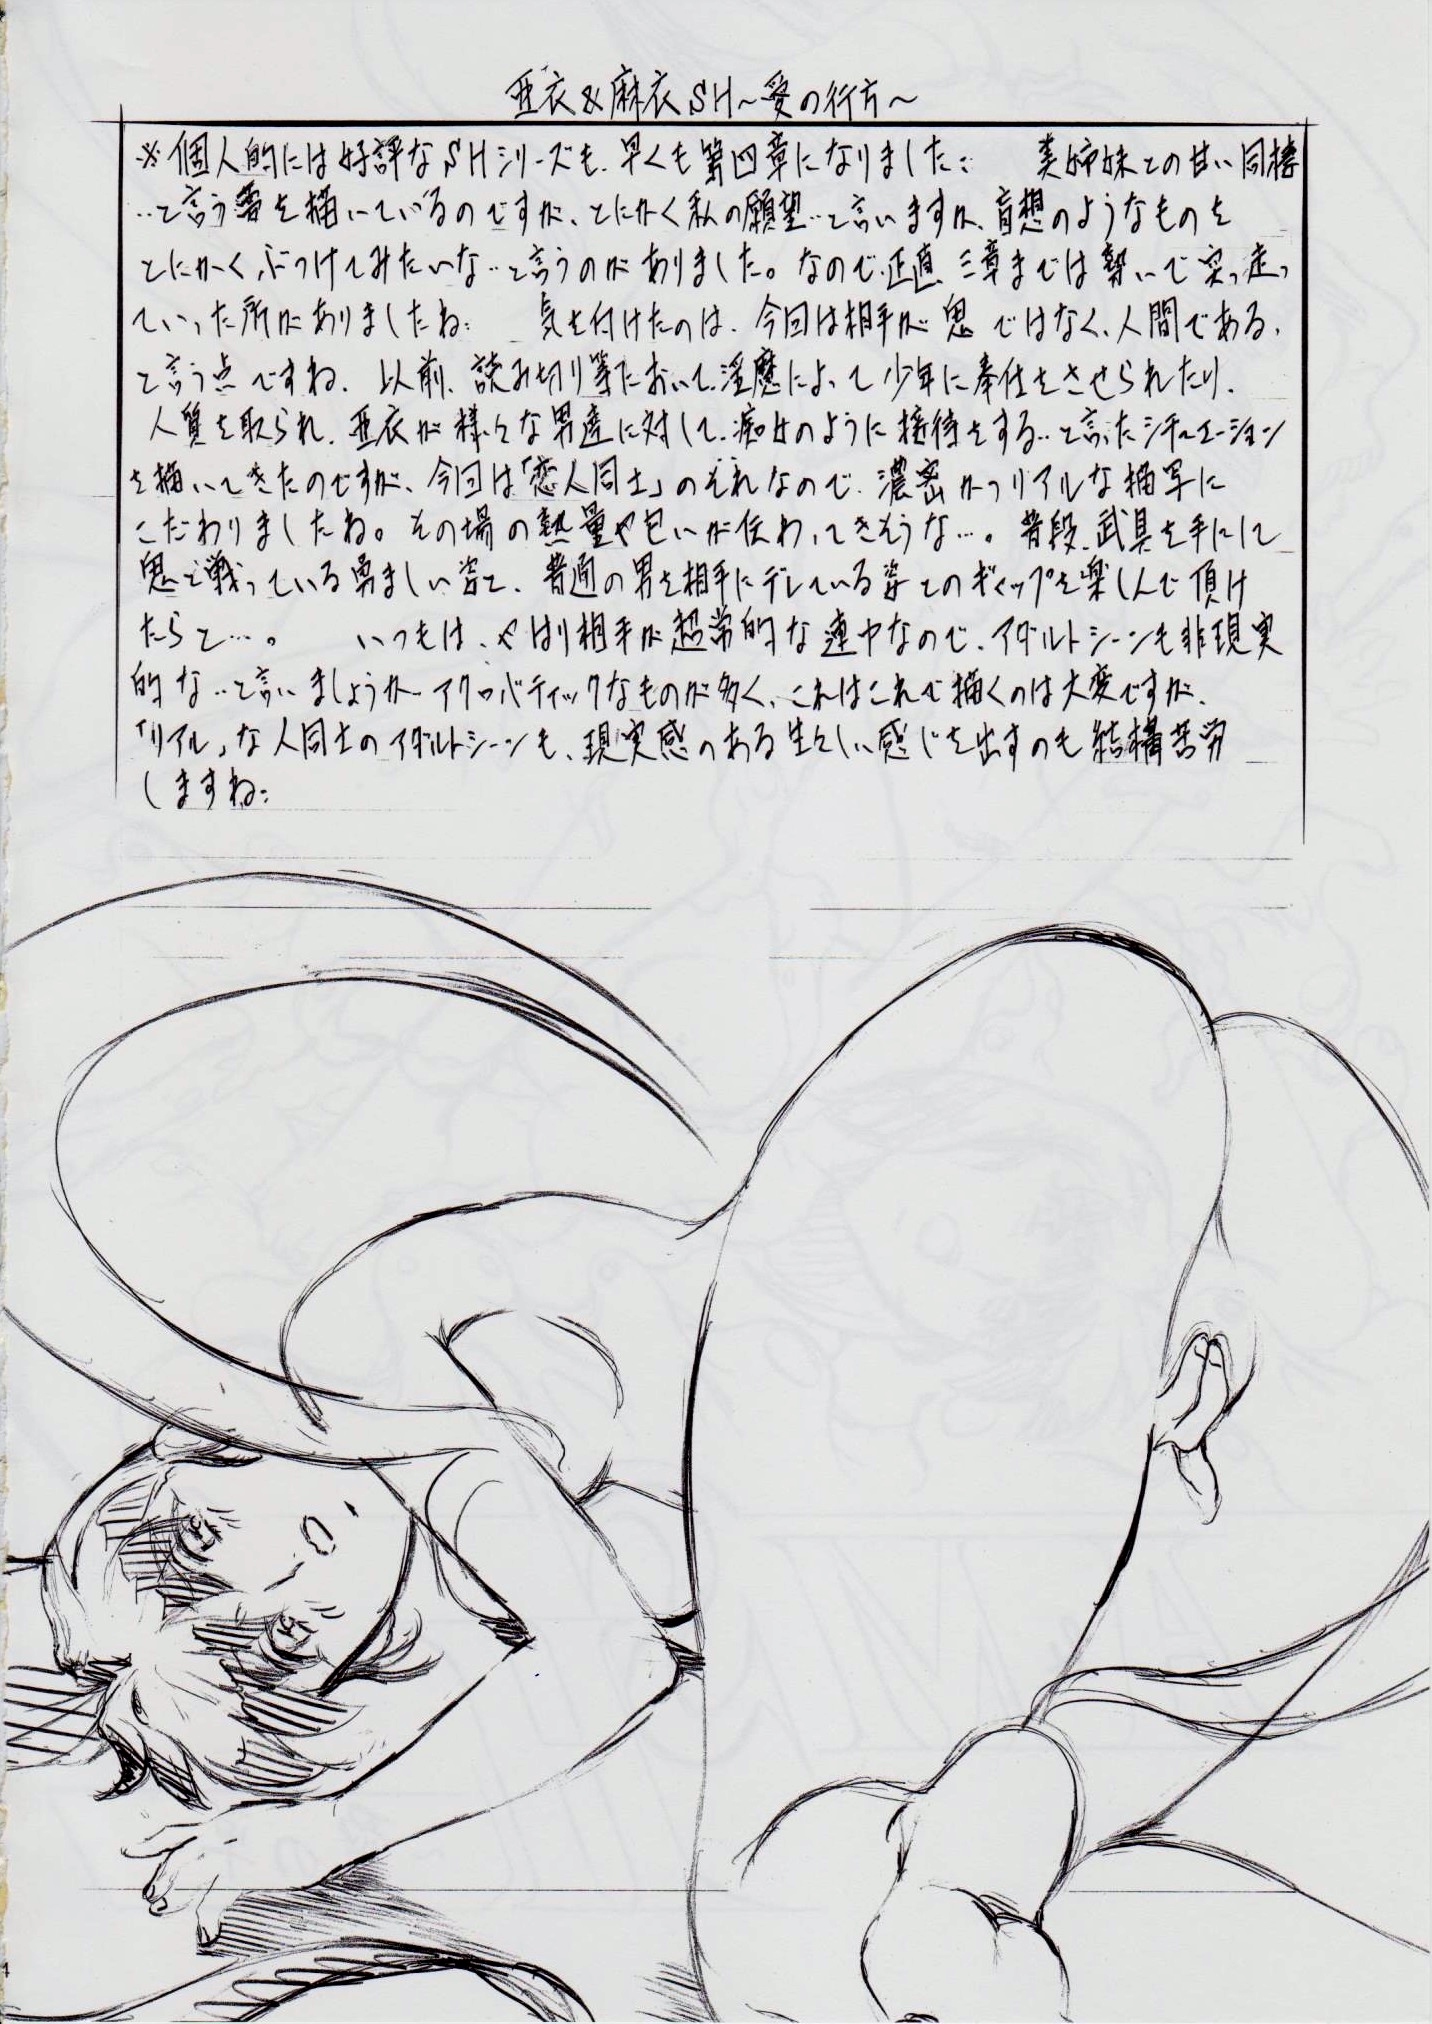 亜衣&麻衣SH〜愛の行方〜
※個人的には好評なSHシリーズも、早くも第四章になりました… 美姉妹との甘い同棲
…と言う夢を描いているのですが、とにかく私の願望…と言いますか、盲想のようなものを
とにかくぶつけてみたいな…と言うのがありました。なので、正直、三章までは勢いで突っ走っ
ていった所がありましたね… 気を付けたのは、今回は相手が鬼ではなく、人間である、
と言う点ですね。以前、読み切り等において、淫魔によって少年に奉仕をさせられたり、
人質を取られ、亜衣が様々な男達に対して、痴女のように接待をする…と言ったシチュエーション
を描いてきたのですが、今回は「恋人同士」のそれなので、濃密かつリアルな描写に
こだわりましたね。その場の熱量や匂いが伝わってきそうな…。普段、武具を手にして
鬼と戦っている勇ましい姿と、普通の男を相手にデレている姿とのギャップを楽しんで頂け
たらと…。 いつもは、やはり相手が超常的な連中なので、アダルトシーンも非現実
的な…と言いましょうか、アクロバティックなものが多く、これはこれで描くのは大変ですが、
「リアル」な人同士のアダルトシーンも、現実感のある生々しい感じを出すのも結構苦労
しますね…
4